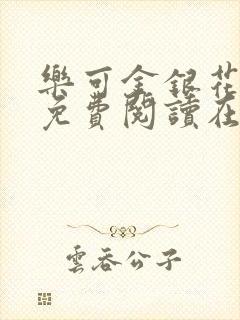 樂可金銀花
免費閱讀在
雲吞公子